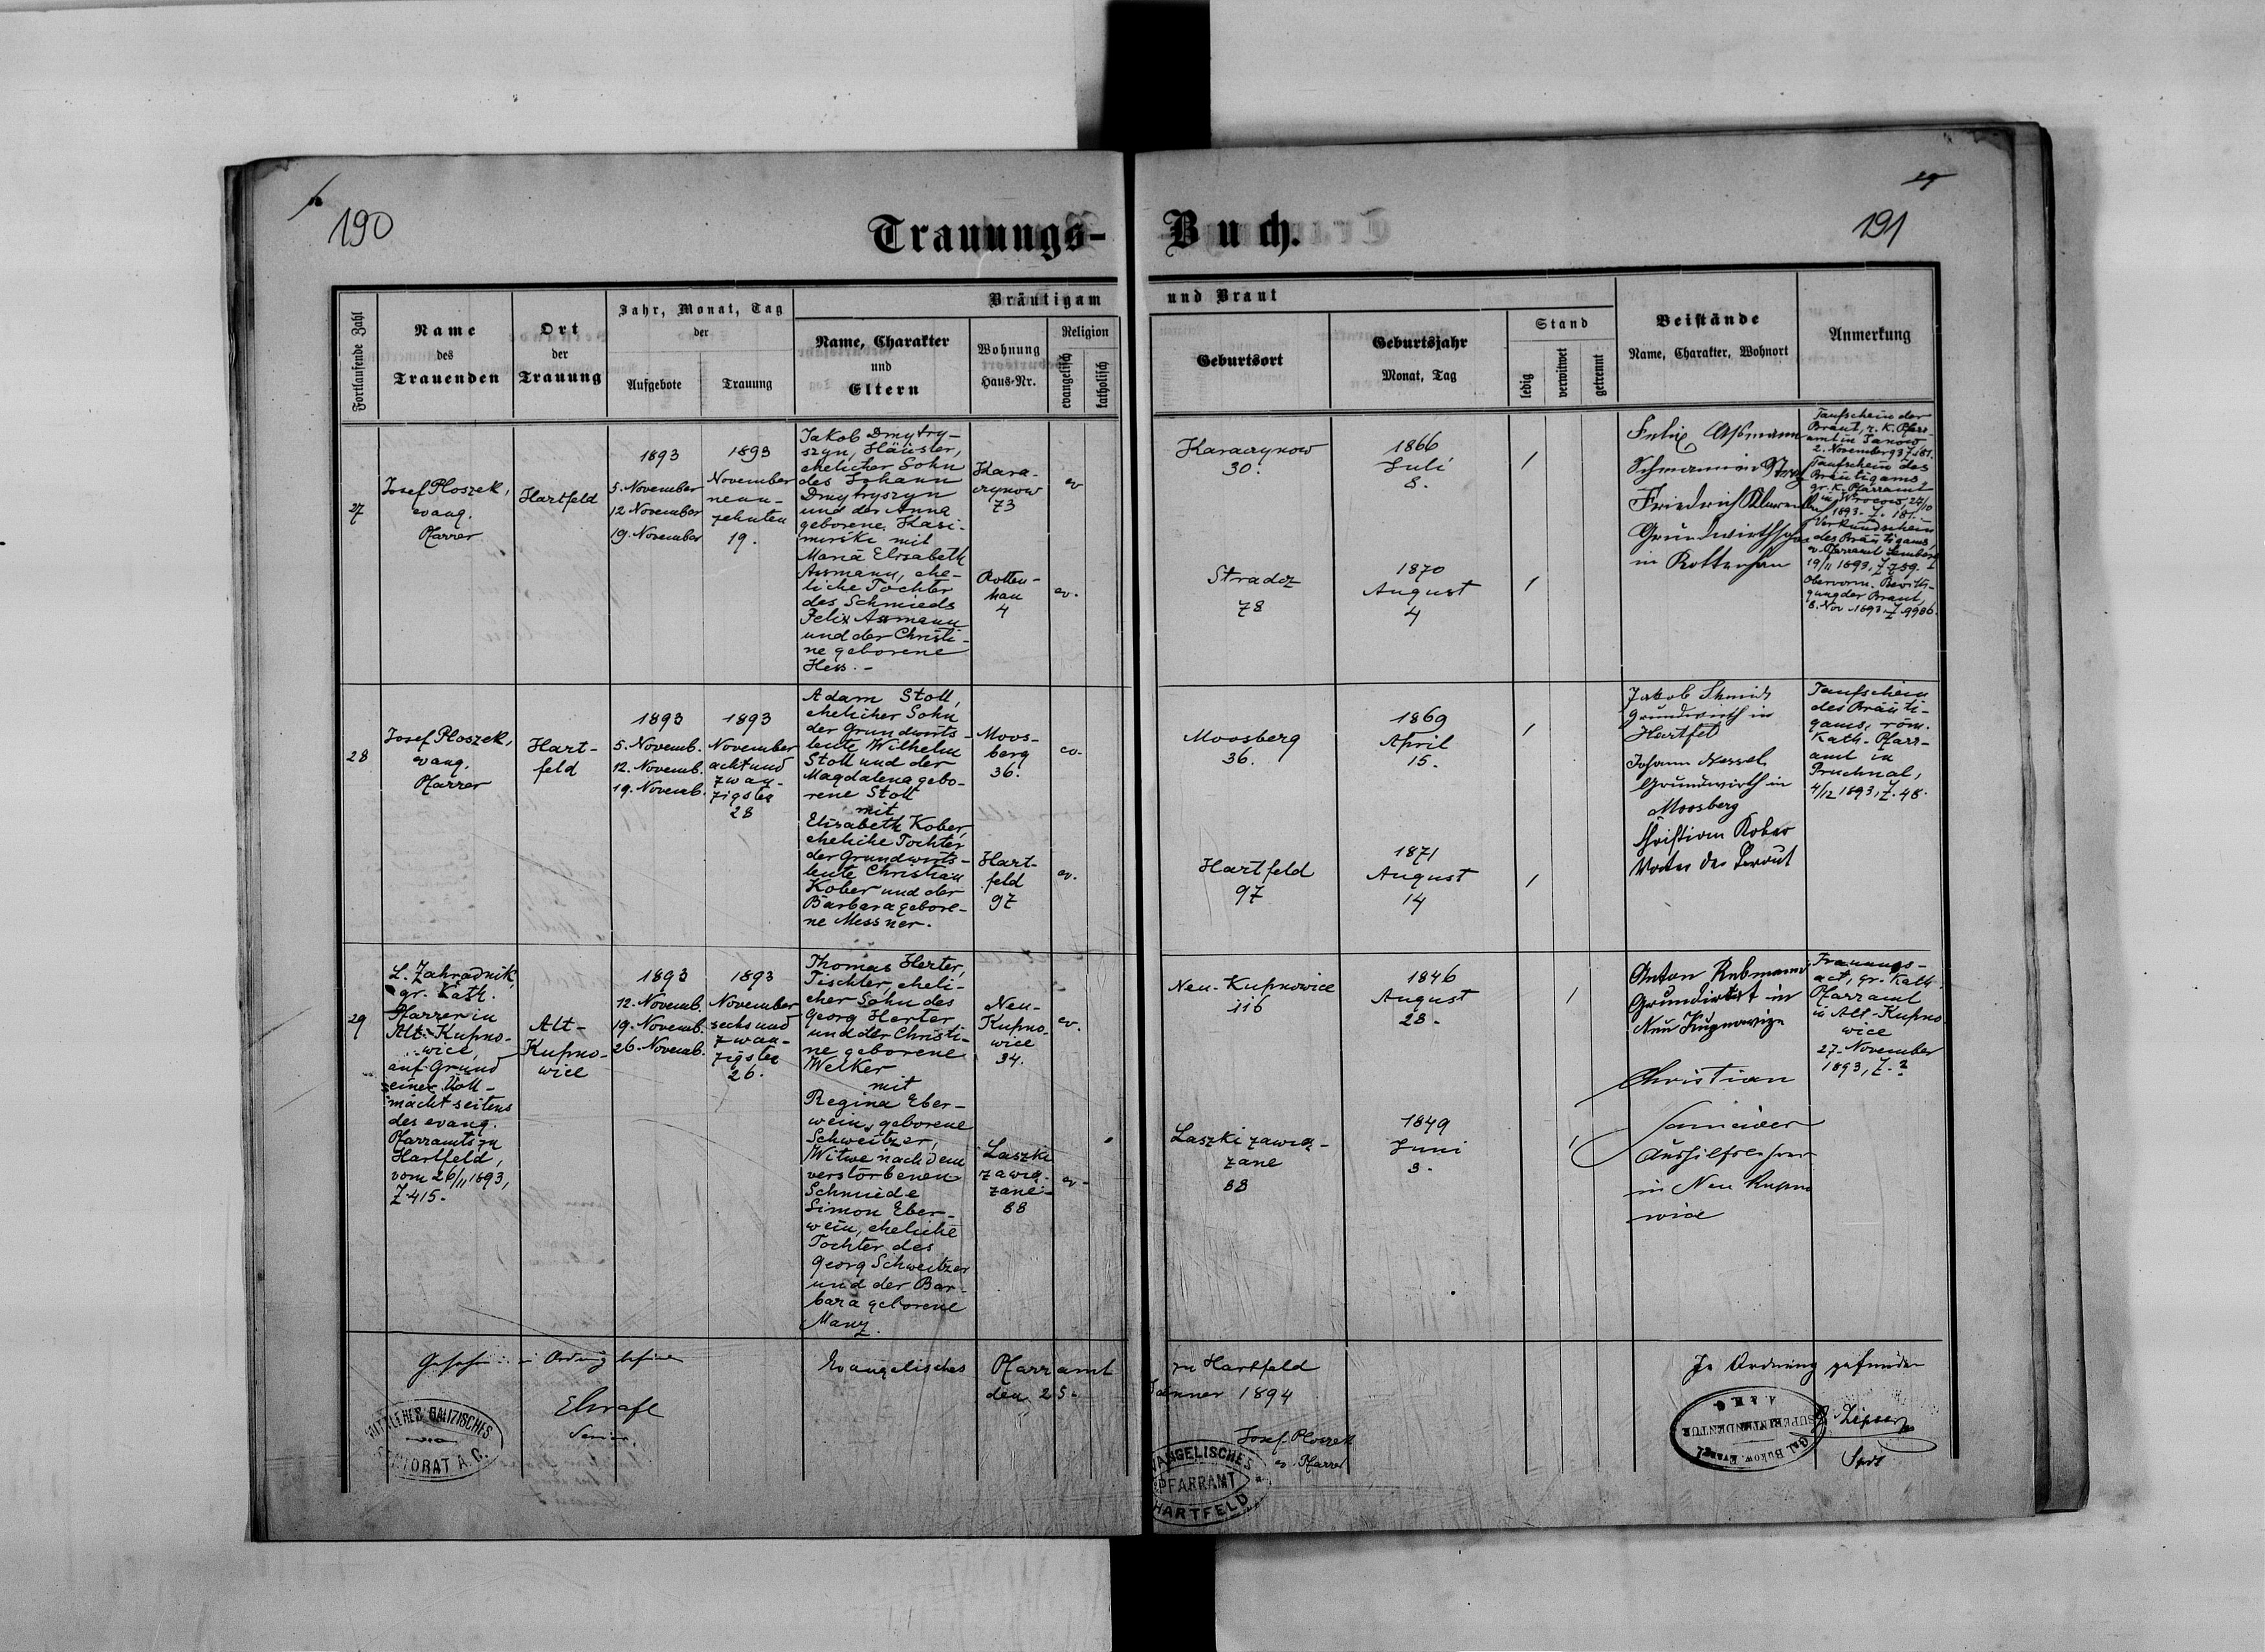 190
191
Trauungs-Buch.
Fortlaufende Zahl
Name
des
Trauenden
Ort
der
Trauung
Jahr, Monat, Tag
der
Aufgebote
Trauung
Bräutigam und Braut
Name, Charakter
und
Eltern
Wohnung
Haus-Nr.
Religion
evangelisch
katholisch
Geburtsort
Geburtsjahr
Monat, Tag
Stand
ledig
verwitwet
getrennt
Beistände
Name, Charakter, Wohnort
Anmerkung
27
Josef Ploszek,
evang.
Pfarrer
Hartfeld
1893
5. November
12 November
19. November
1893
November
neun-
zehnten
19.
Jakob Dmytry-
szyn, Häusler,
ehelicher Sohn
des Johann
Dmytryszyn
und der Anna
geborene Kasi-
mirski mit
Maria Elisabeth
Assmann, ehe-
liche Tochter
des Schmieds
Felix Assmann
und der Christi-
ne geborene
Hess. -
Kara-
czynow
73
ev
Rotten-
han
4
ev.
Karaczynow
30.
1866
Juli
8.
Stradcz
78
1870
August
4
Felix Aßmann
Friedrich
Grundwirthsohn
in Rottenhan
Taufschein der
Braut, r. K. Pfarr-
amt in Janow
2. November 93
Taufschein des
Bräutigams
gr. K. Pfarramt
in Wrocow, 27/10
1893. Z. 181.
Verkündschein
des Bräutigams,
ev. Pfarramt Lemberg
19/11 1893, Z 789.
Obervorm. Bewilli-
gung der Braut,
8. Nov. 1893. Z 9986.
28
Josef Ploszek,
evang.
Pfarrer
Hart-
feld
1893
5. Novemb.
12. Novemb.
19. Novemb.
1893
November
achtund
zwan-
zigsten
28
Adam Stoll,
ehelicher Sohn
der Grundwirts-
leute Wilhelm
Stoll und der
Magdalena gebo-
rene Stoll
mit
Elisabeth Kober,
eheliche Tochter
der Grundwirts-
leute Christian
Kober und der
Barbara gebore-
ne Messner.
Moos-
berg
36.
ev.
Hart-
feld
97
ev.
Moosberg
36.
1869
April
15.
Hartfeld
97
1871
August
14
Jakob Shmid
Grundwirth in
Hartfeld
Johann Wessel
Grundwirth in
Moosberg
Christian Kober
Vater der Braut
Taufschein
des Bräuti-
gams, röm.
Kath. Pfarr-
amt in
Bruchnal,
4/12 1893, Z. 48.
29
L. Zahradnik,
gr. Kath.
Pfarrer in
Alt-Kupno-
wice,
auf Grund
einer Voll-
macht seitens
des evang.
Pfarramts zu
Hartfeld,
vom 26/11 1893,
Z 415.
Alt-
Kupno-
wice
1893
12. Novemb.
19. Novemb.
26. Novemb.
1893
November
sechsund
zwan-
zigsten
26.
Thomas Herter,
Tischler, eheli-
cher Sohn des
Georg Herter
und der Christi-
ne geborene
Welker
mit
Regina Eber-
wein, geborene
Schweitzer,
Witwe nach dem
verstorbenen
Schmiede
Simon Eber-
wein, eheliche
Tochter des
Georg Schweitzer
und der Bar-
bara geborene
Manz.
Neu-
Kupno-
wice
34.
ev.
Laszki
zawią-
zane
88
ev.
Neu-Kupnowice
116
1846
August
28.
Laszki zawią-
zane
88
1849
Juni
3.
Anton Rebmann
Grundwirt in
Neu Kupnowize
Christian
Aushilfslehrer
in Neu Kupno
wice
Trauungs-
act, gr. Kath.
Pfarramt
in Alt-Kupno
wice
27. November
1893, Z. ?
Evangelisches Pfarramt zu Hartfeld
den 25. Jänner 1894
Josef Ploszek
ev. Pfarrer
EVANGELISCHES
PFARRAMT
HARTFELD
Senior.
MITTLERES GALIZISCHES
SENIORAT A. C.
In Ordnung gefunden
Gal. Bukow. Evangel.
SUPERINTENDENTUR